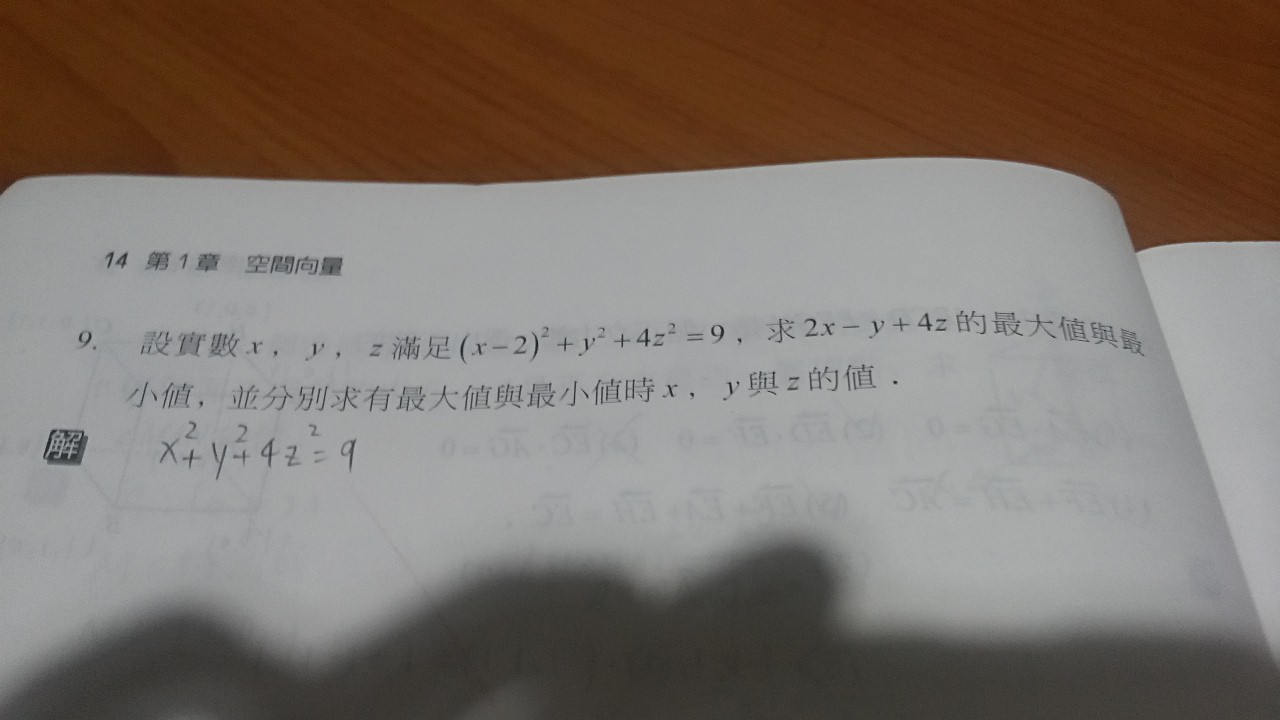 14 第1章 空間向量
9. 設實數 x , y , z 滿足 (x-2)² + y² + 4z² = 9 , 求 2x - y + 4z 的最大值與最
小值，並分別求有最大值與最小值時 x , y 與 z 的值 .
解 x² + y² + 4z² = 9